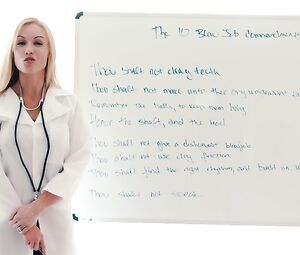 The 10 Blow Job Commandments
Thou shalt not drag teeth
Thou shalt not make unto thee any
Remember the balls, to keep them holy
Honor the shaft, and the head
Thou shall not give a dishonest blowjob
Thou shall not use dry friction
Thou shall find the right rhythm, and build on
Thou shall not speak